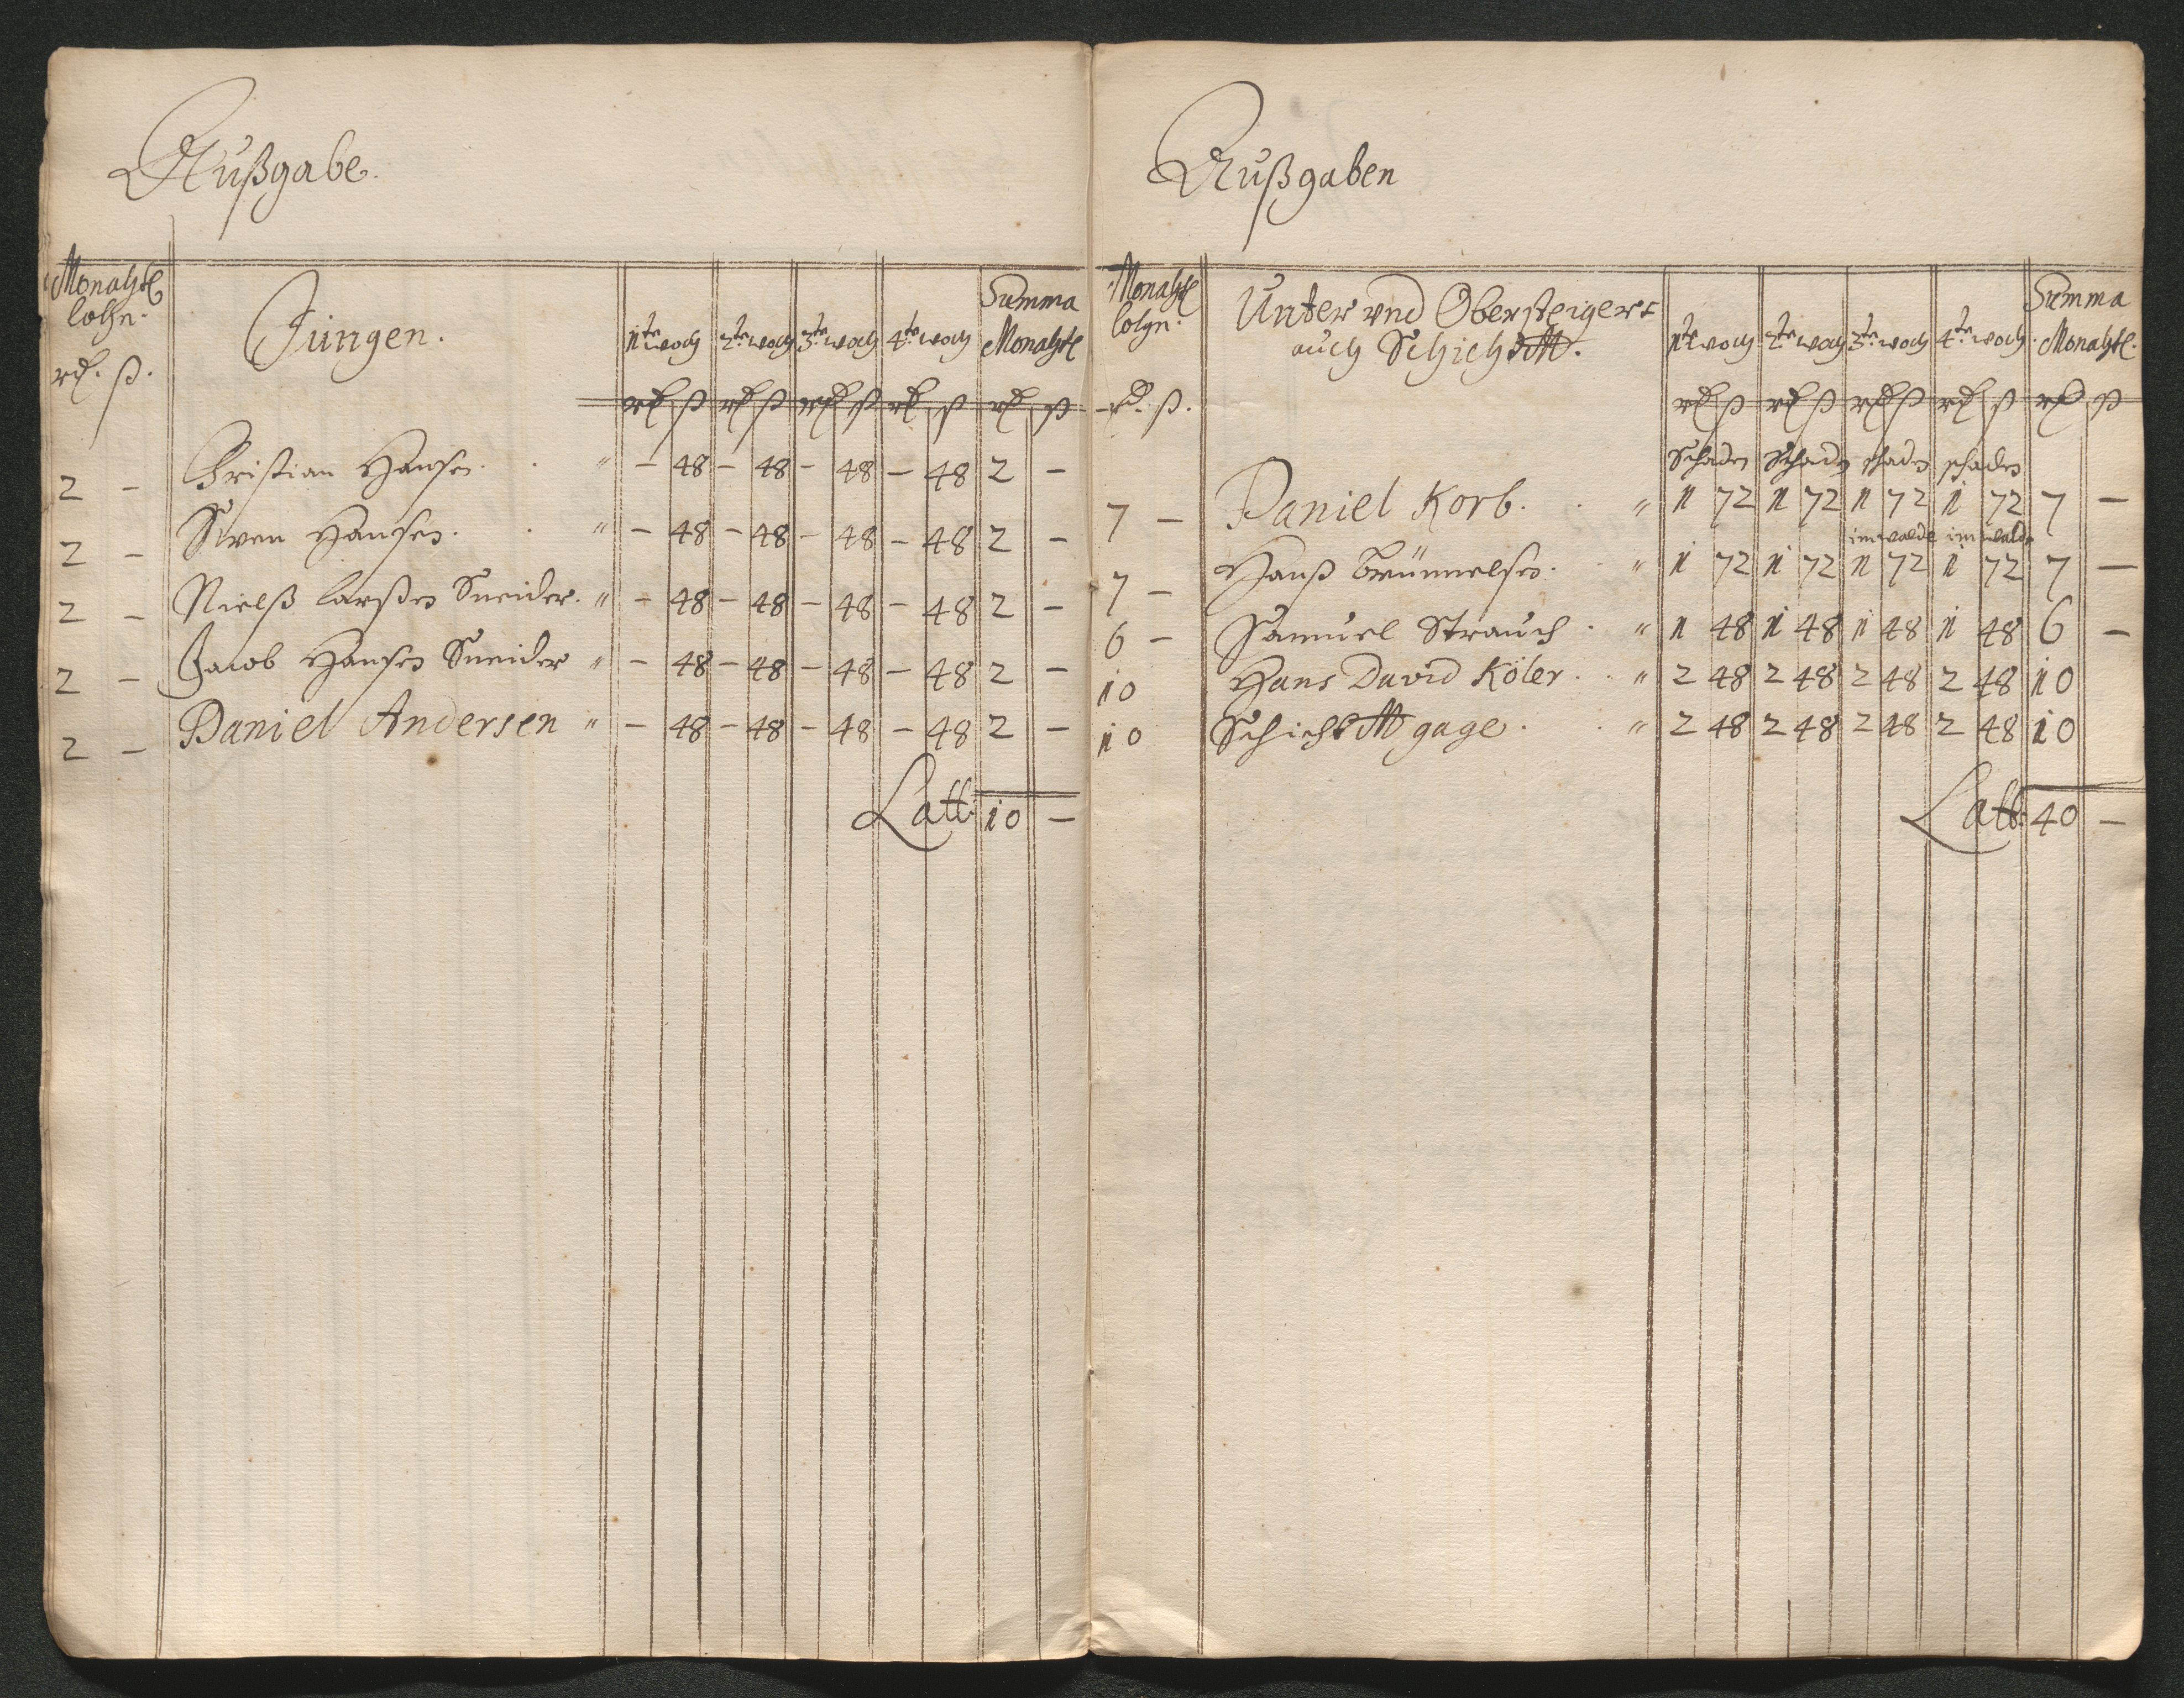 Außgabe.
Monahtl lohn. rd. ß. | Jungen. | 1te woch rd ß | 2te woch rd ß | 3te woch rd ß | 4te woch rd ß | Summa Monahtl rd ß
2 – Christian Hansen. " – 48 – 48 – 48 – 48 2 –
2 – Siven Hansen. " – 48 – 48 – 48 – 48 2 –
2 – Nielß Larßen Sneider. " – 48 – 48 – 48 – 48 2 –
2 – Jacob Hansen Sneider " – 48 – 48 – 48 – 48 2 –
2 – Daniel Andersen " – 48 – 48 – 48 – 48 2 –
Latt. 10 –
Außgaben
Monahtl lohn. rd. ß. | Unter und Obersteigers auch SchichtM. | 1te woch rd ß | 2te woch rd ß | 3te woch rd ß | 4te woch rd ß | Summa Monahtl. rd ß
Schaden Schaden schaden schaden
7 – Daniel Korb. " 1 72 1 72 1 72 1 72 7 –
im walde im walde
7 – Hanß Brünnelsen. " 1 72 1 72 1 72 1 72 7 –
6 – Samuel Strauch " 1 48 1 48 1 48 1 48 6 –
10 Hans David Köler. " 2 48 2 48 2 48 2 48 10
10 SchichtM gage. " 2 48 2 48 2 48 2 48 10
Latt: 40 –